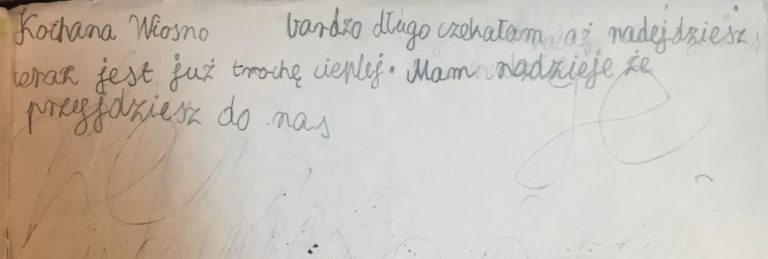 Kochana Wiosno bardzo długo czekałam aż nadejdziesz,
teraz jest już trochę cieplej. Mam nadzieje że
przyjdziesz do nas